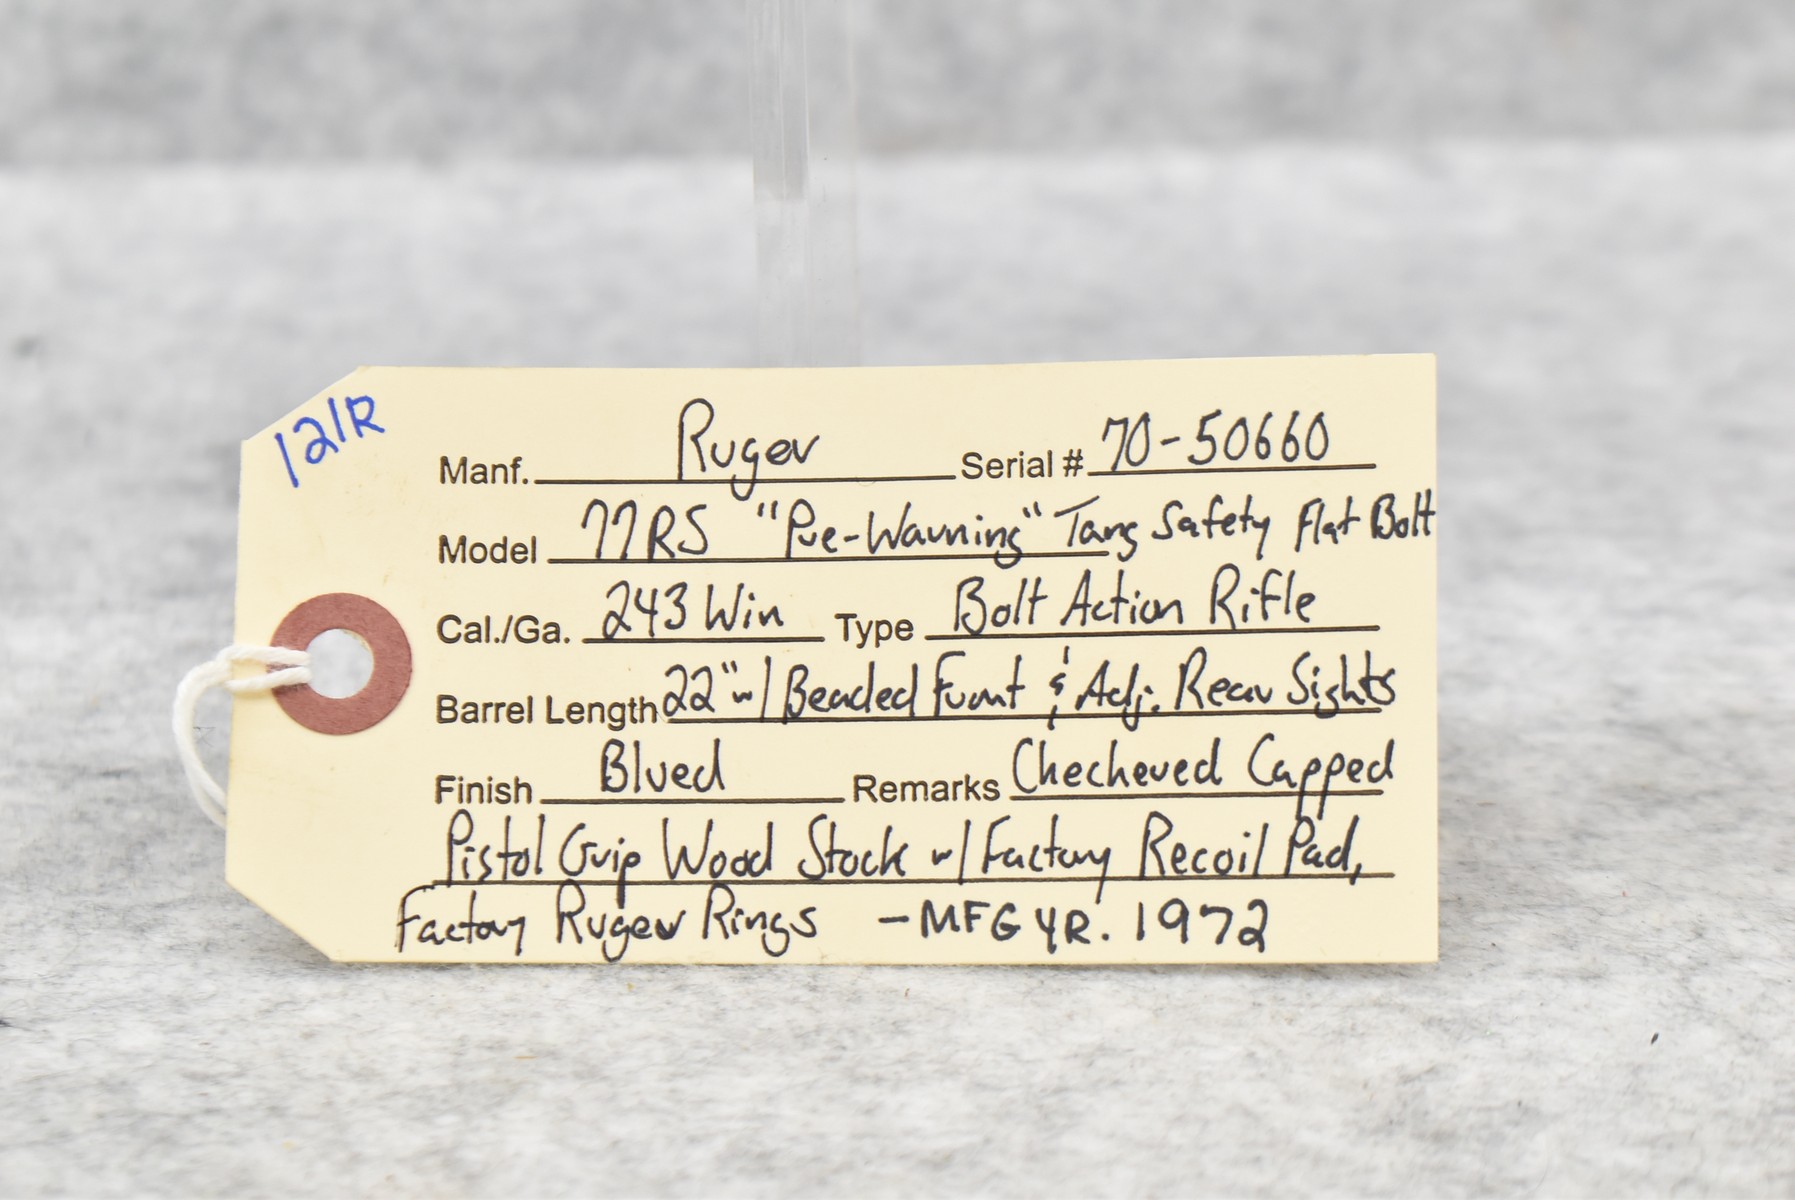 121R
Manf. Ruger Serial # 70-50660
Model 77RS "Pre-Warning" Tang Safety Flat Bolt
Cal./Ga. 243 Win Type Bolt Action Rifle
Barrel Length 22" w/ Beaded Front & Adj. Rear Sights
Finish Blued Remarks Checkered Capped
Pistol Grip Wood Stock w/ Factory Recoil Pad,
Factory Ruger Rings - MFG YR. 1972